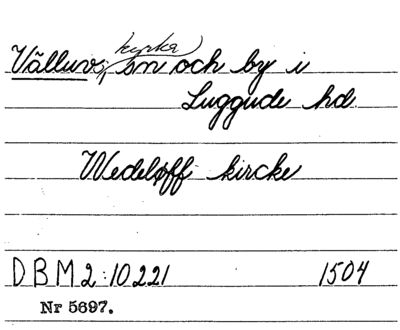 kyrka
Välluvs, sn och by i
Luggude hd
Wedeløff kircke
DBM 2:10221 1504
Nr 5697.